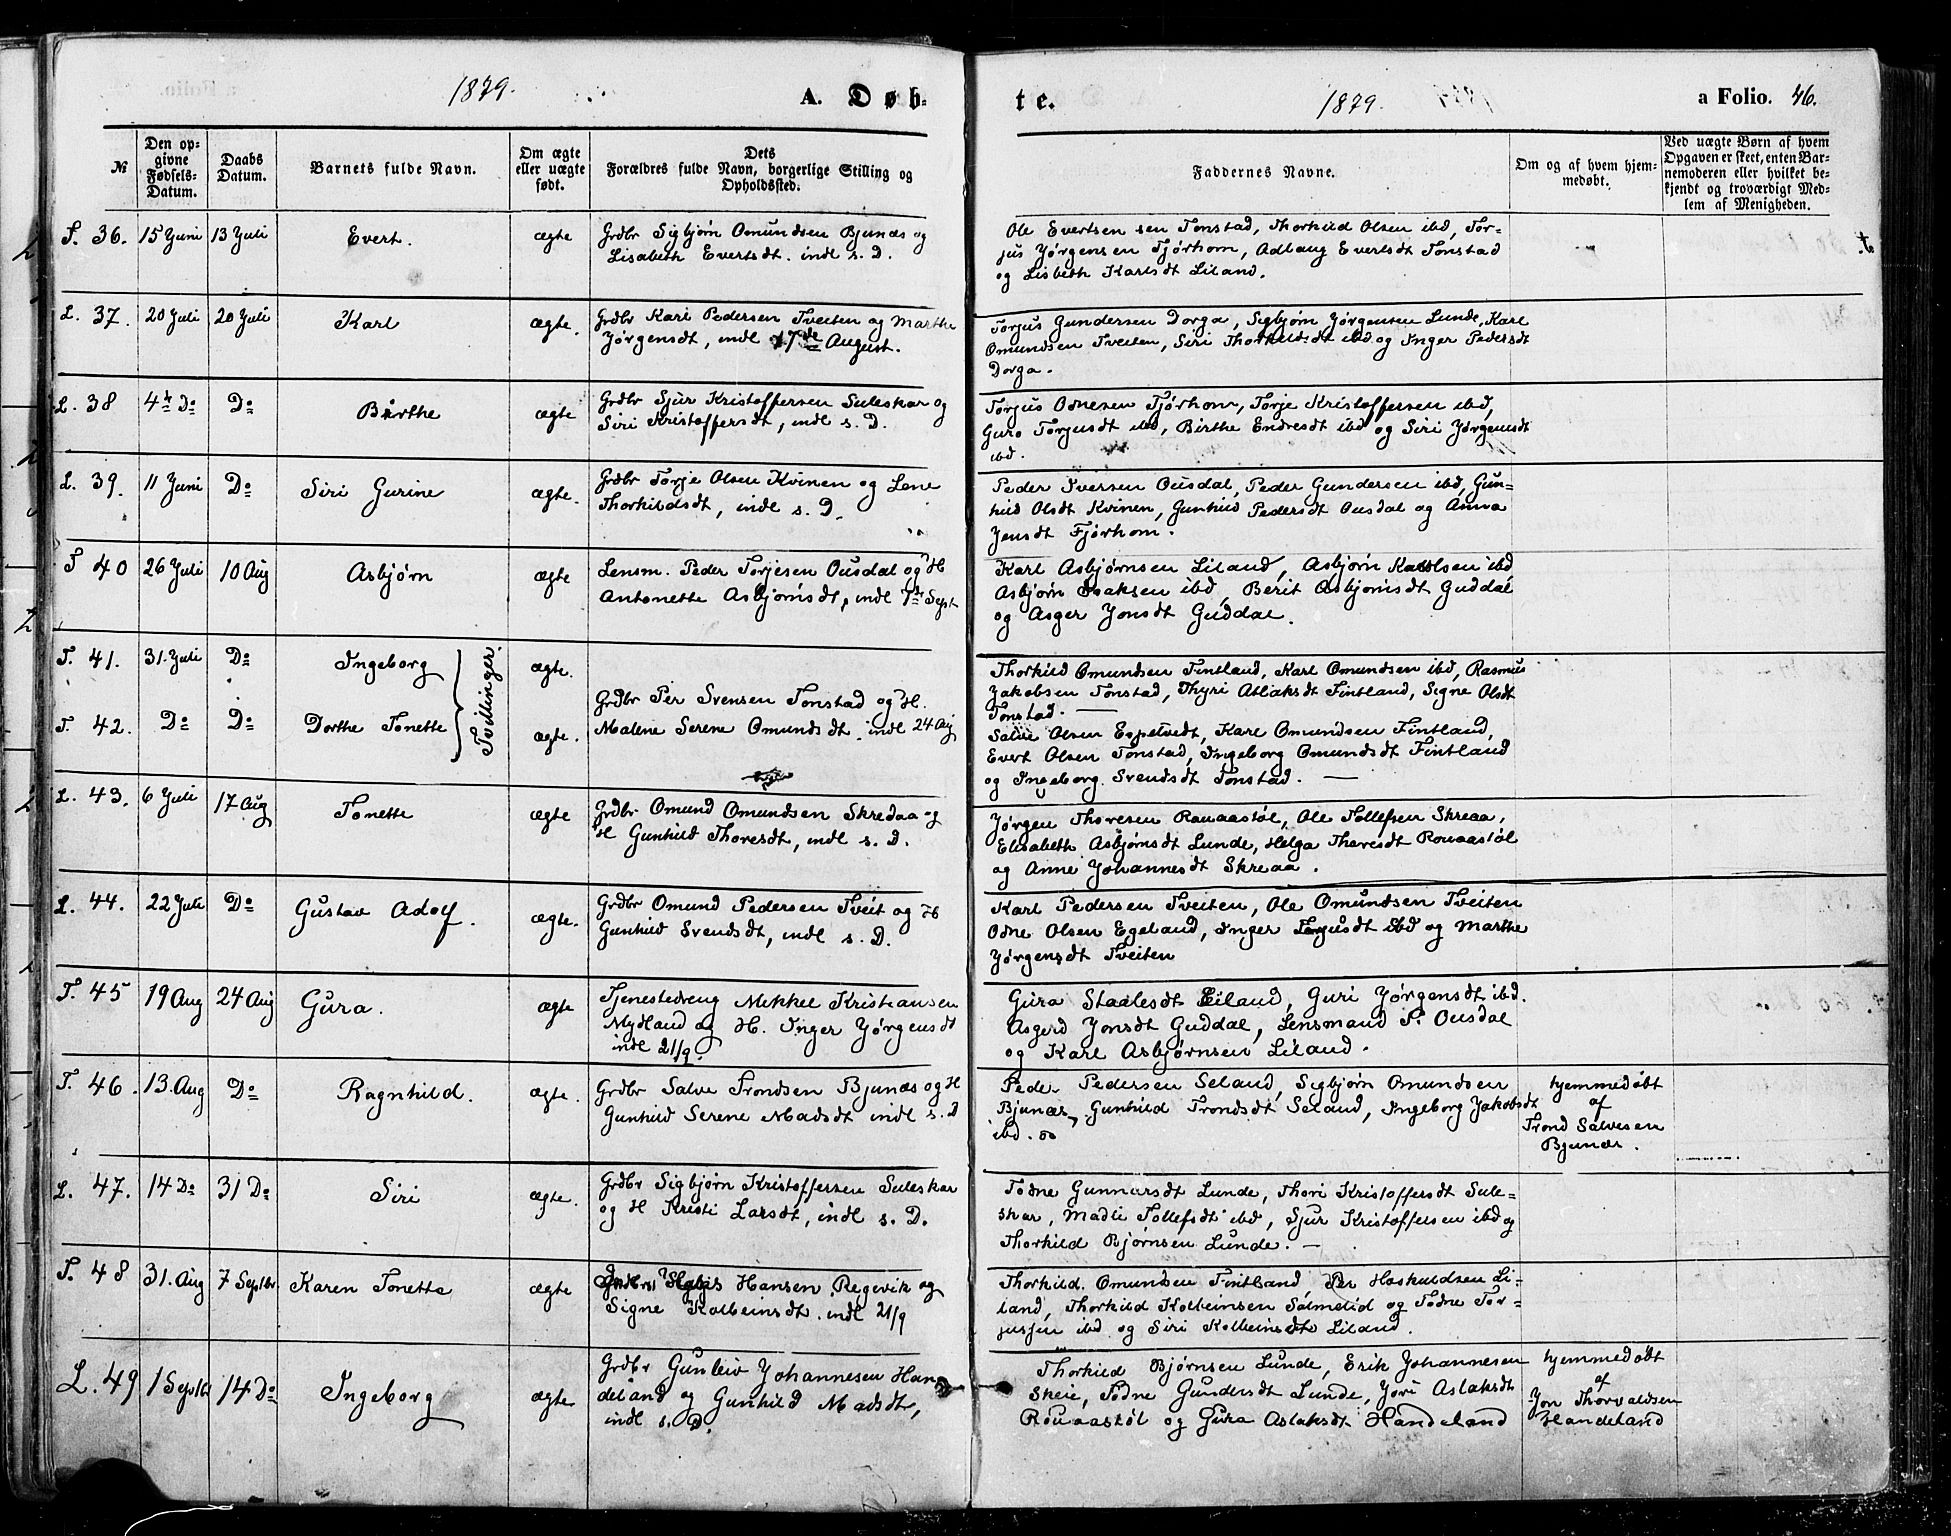 1879.
A. Døb-
te.
1879.
a Folio. 46.
№
Den op-
givne
Fødsels-
Datum.
Daabs
Datum.
Barnets fulde Navn.
Om ægte
eller uægte
født.
Dets
Forældres fulde Navn, borgerlige Stilling og
Opholdssted.
Faddernes Navne.
Om og af hvem hjem-
medøbt.
Ved uægte Børn af hvem
Opgaven er skeet, enten Bar-
nemoderen eller hvilket be-
kjendt og troværdigt Med-
lem af Menigheden.
T. 36. 15 Juni 13 Juli Evert. ægte
Grdbr Sigbjørn Omundsen Bjunæs og
Lisabeth Evertsdt. indl s. D.
Ole Evertsen sen Tonstad, Thorkild Olsen ibd, Tor-
jus Jørgensen Fjørhom, Adlaug Evertsdt Tonstad
og Lisbeth Karlsdt Liland.
L. 37. 20 Juli 20 Juli Karl ægte.
Grdbr Karl Pedersen Tveiten og Marthe
Jørgensdt, indl 17de August.
Torjus Gundersen Dorga, Sigbjørn Jørgensen Lunde, Karl
Omundsen Tveiten, Siri Thorkildsdt ibd og Inger Pedersdt
Dorga.
L. 38 4de Do Do Birthe ægte
Grdbr Sjur Kristoffersen Suleskar og
Siri Kristoffersdt, indl s. D.
Torjus Odnesen Fjørhom, Torje Kristoffersen ibd,
Guro Torjusdt ibd, Birthe Endresdt ibd og Siri Jørgensdt
ibd.
L. 39. 11 Juni Do Siri Gurine ægte.
Grdbr Torje Olsen Kvinen og Lene
Thorkildsdt, indl s. D.
Peder Iversen Ousdal, Peder Gundersen ibd, Gun-
hild Olsdt Kvinen, Gunhild Pedersdt Ousdal og Anna
Jensdt Fjørhom.
T 40 26 Juli 10 Aug Asbjørn ægte
Lensm. Peder Torjesen Ousdal og H
Antonette Asbjørnsdt, indl 7de Sept
Karl Asbjørnsen Liland, Asbjørn Karlsen ibd
Asbjørn Isaksen ibd, Berit Asbjørnsdt Guddal
og Asger Jonsdt Guddal.
T. 41. 31. Juli Do Ingeborg ægte.
Tvillinger.
T. 42. Do Do Dorthe Tonette ægte.
Grdbr Per Svensen Tonstad og H.
Malene Serene Omundsdt. indl 24 Aug
Thorkild Omundsen Fintland, Karl Omundsen ibd, Rasmus
Jakobsen Tonstad, Thyri Atlaksdt Fintland, Signe Olsdt
Tonstad. —
Salve Olsen Espetvedt, Karl Omundsen Fintland,
Evert Olsen Tonstad, Ingeborg Omundsdt Fintland
og Ingeborg Svendsdt Tonstad. —
L. 43. 6 Juli 17 Aug Tonette ægte
Grdbr Omund Omundsen Skredaa og
H Gunhild Thoresdt, indl s. D.
Jørgen Thoresen Rouaastøl, Ole Tollefsen Skreaa,
Elisabeth Asbjørnsdt Lunde, Helga Thoresdt Rouaastøl
og Anne Johannesdt Skreaa.
L. 44. 22 Juli Do Gustav Adolf. ægte.
Grdbr Omund Pedersen Tveit og H
Gunhild Svendsdt, indl s. D.
Karl Pedersen Tveiten, Ole Omundsen Tveiten
Odne Olsen Egeland, Inger Torjusdt ibd og Marthe
Jørgensdt Tveiten
T. 45 19 Aug 24 Aug Gura. ægte
Tjenestedreng Mikkel Kristiansen
Mydland og H. Inger Jørgensdt
indl 21/9.
Gura Staalesdt Liland, Guri Jørgensdt ibd.
Asgerd Jonsdt Guddal, Lensmand P. Ousdal
og Karl Asbjørnsen Liland.
T. 46. 13. Aug Do Ragnhild. ægte.
Grdbr Salve Trondsen Bjunæs og H
Gunhild Serene Madsdt indl s. D
Peder Pedersen Seland, Sigbjørn Omundsen
Bjunæs, Gunhild Trondsdt Seland, Ingeborg Jakobsdt
ibd.
hjemmedøbt
af
Trond Salvesen
Bjunæs.
L. 47. 14 Do 31 Do Siri ægte.
Grdbr Sigbjørn Kristoffersen Suleskar
og H Kristi Larsdt, indl s. D.
Todne Gunnarsdt Lunde, Thori Kristoffersdt Sule-
skar, Madli Tollefsdt ibd, Sjur Kristoffersen ibd og
Thorkild Bjørnsen Lunde. —
T. 48 31. Aug 7 Septbr Karen Tonette ægte
Hansen Regevik og
Signe Kolbeinsdt. indl 21/9
Thorkild Omundsen Fintland, Per Hoskuldsen Li-
land, Thorkild Kolbeinsen Salmelid og Todne Tor-
jusjen ibd og Siri Kolbeinsdt Liland.
L. 49 1 Septbr 14 Do Ingeborg ægte
Grdbr Gunleiv Johannesen Han
deland og Gunhild Madsdt,
indl s. D.
Thorkild Bjørnsen Lunde, Erik Johannesen
Skeie, Todne Gundersdt Lunde, Jori Aslaksdt
Rouaastøl og Gura Aslaksdt Handeland
hjemmedøbt
af
Jon Thorvaldsen
Handeland